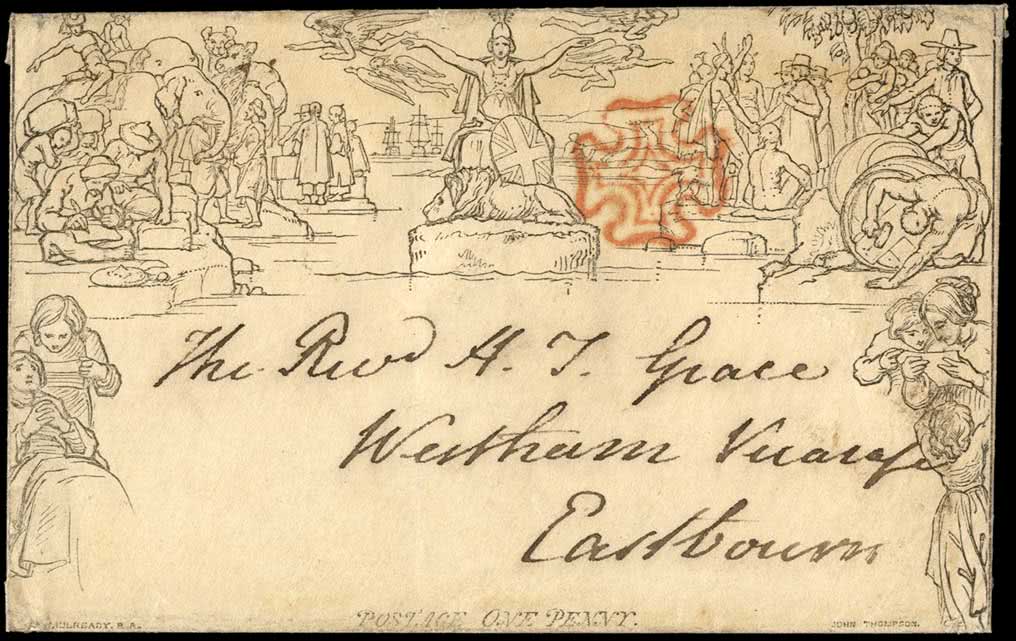 The Revd H. T. Grace
Westham Vicarage
Eastbourn
POSTAGE ONE PENNY.
MULREADY. R.A.
JOHN THOMPSON.